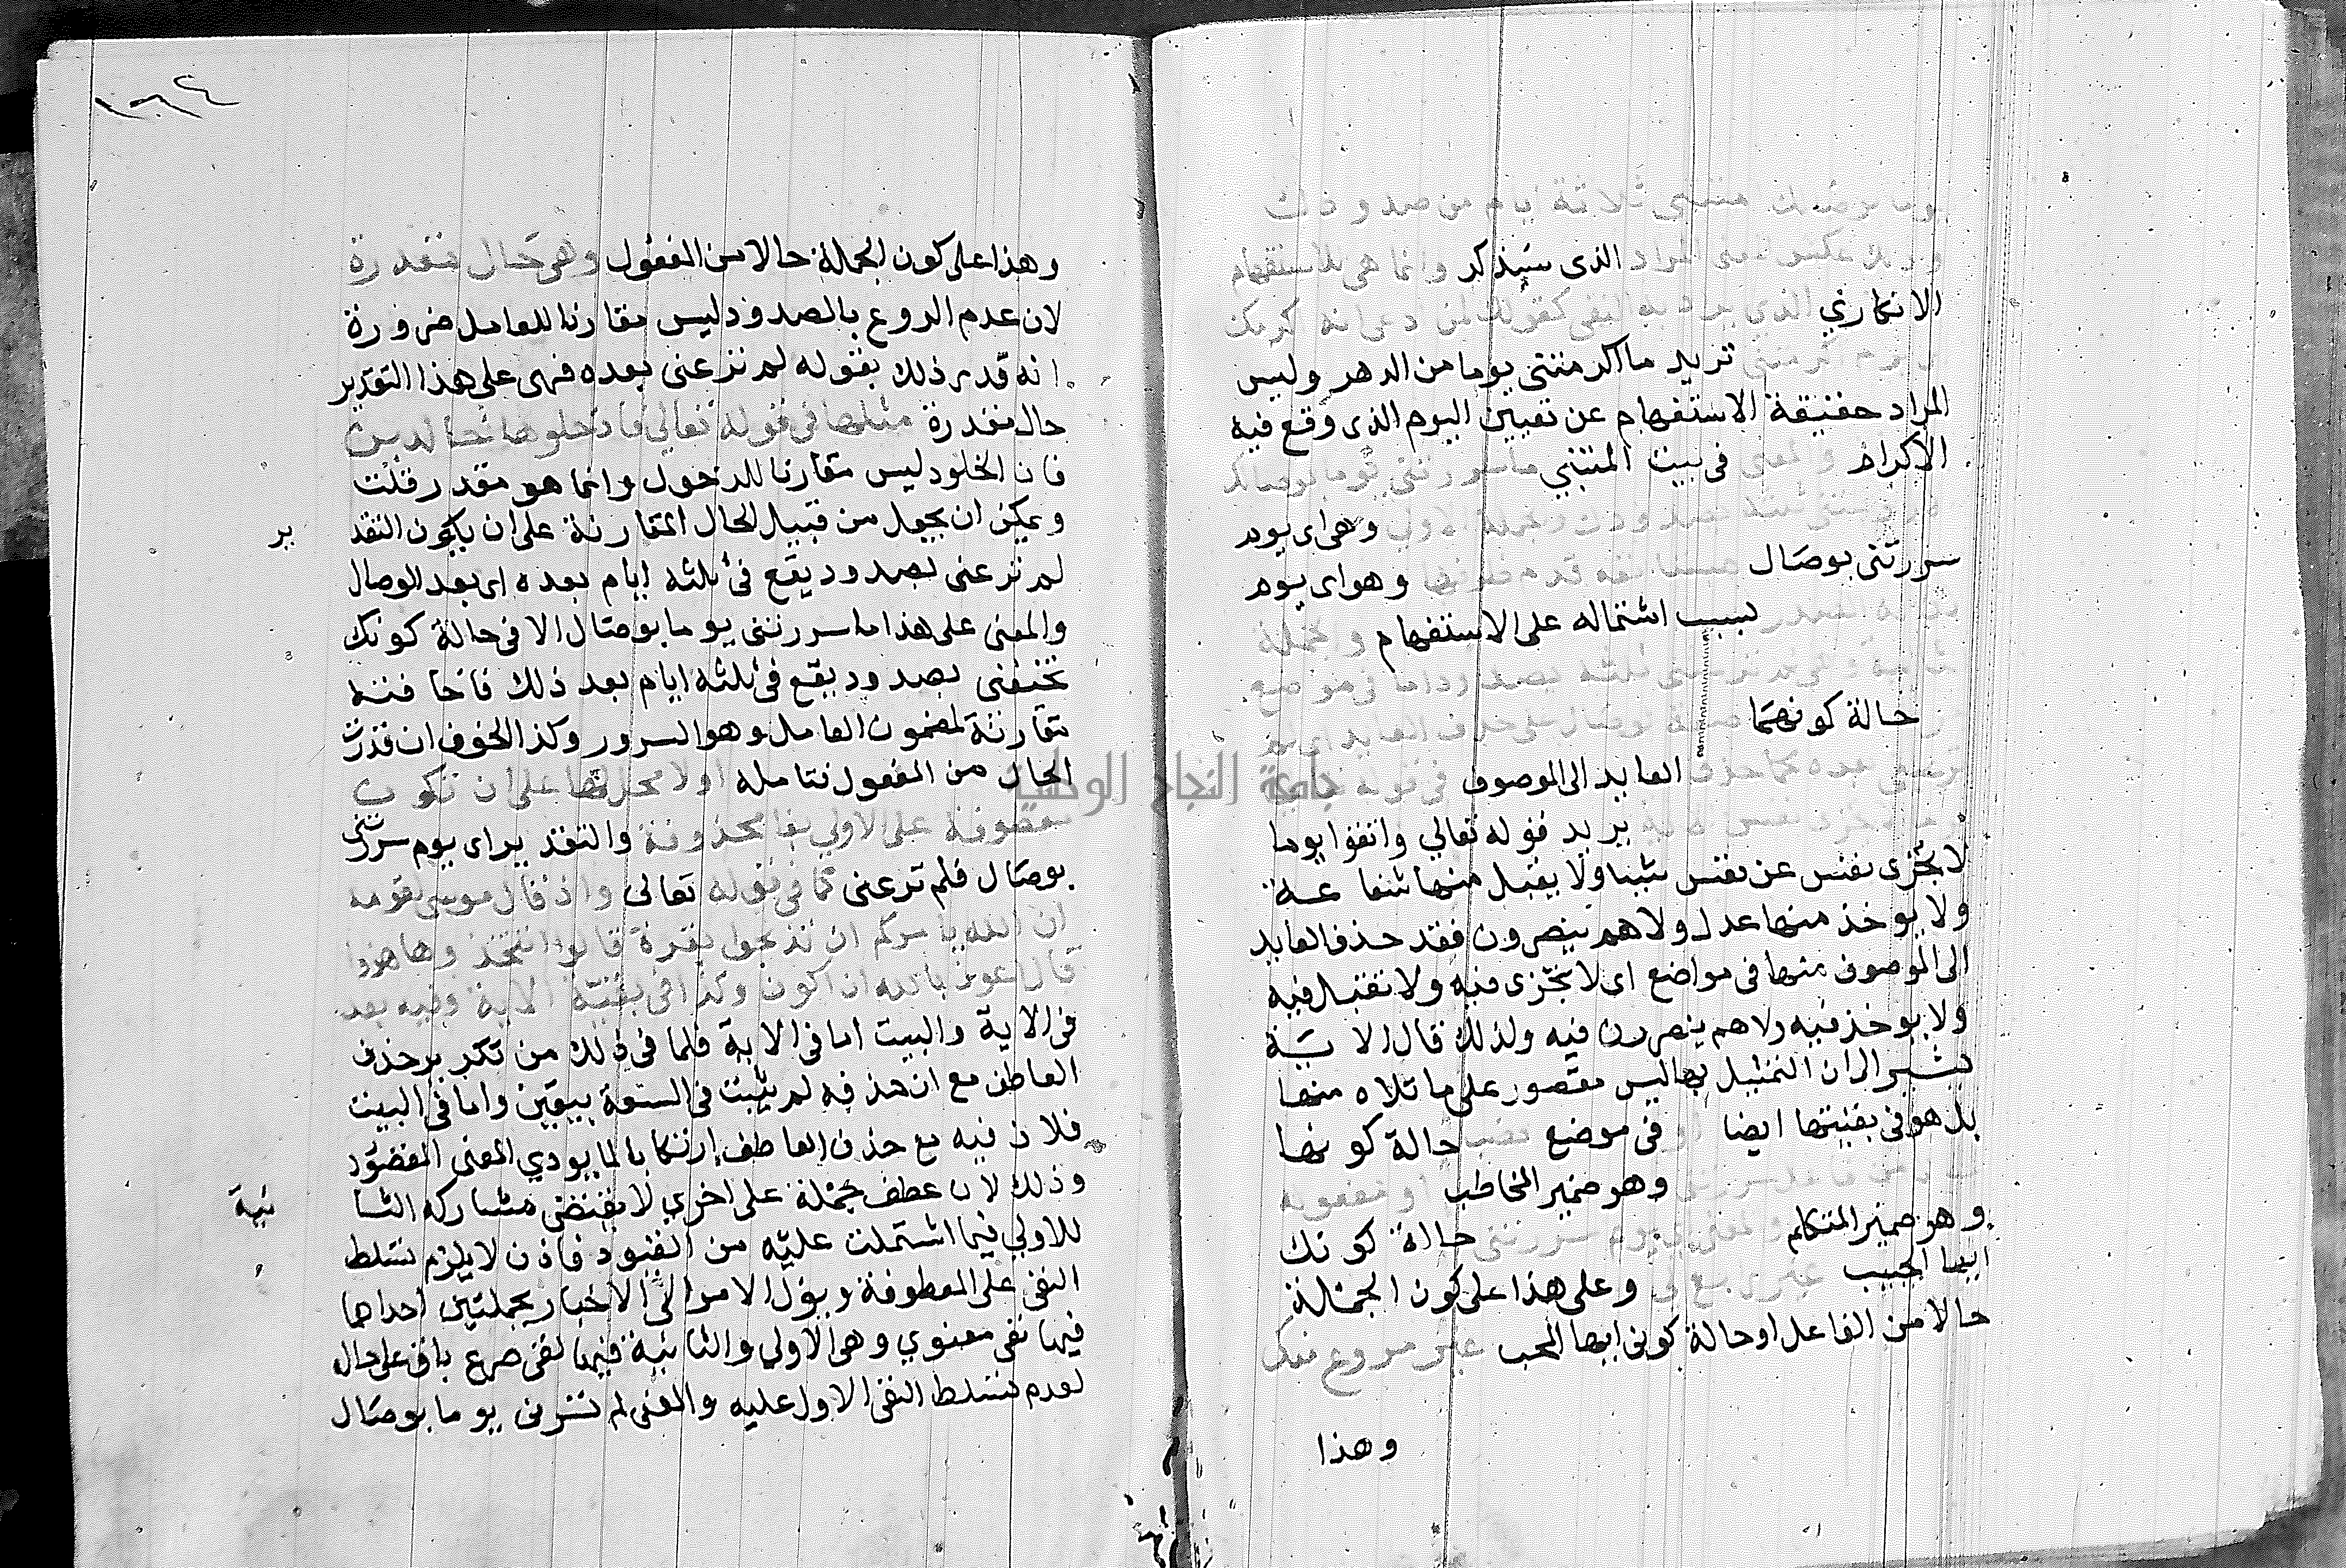 يوما بوصال منتنى ثلاثة ايام من صدود ذلك
عكس المعنى المراد الذى سيذكر وانما هى للاستفهام
الانكاري الذي يراد به النفى كقولك لمن ادعى انه اكرمك
اى يوم اكرمتنى تريد ما اكرمتنى يوما من الدهر وليس
المراد حقيقة الاستفهام عن تعيين اليوم الذى وقع فيه
الاكرام والمعنى فى بيت المتنبي ما سررتنى يوما بوصالك
ترعنى ثلثة بصدودك والجملة الاولى وهى اى يوم
سررتنى بوصال قدم ظرفها وهو اى يوم
بسبب اشتماله على الاستفهام والجملة
الثانية وهى لم ترعنى ثلثة بصدود اما فى موضع
حالة كونها صفة لوصال على حذف العايد اى لم
ترعنى بعده كما حذف العايد الى الموصوف فى قوله تعالى
يريد قوله تعالي واتقوا يوما
لا تجزى نفس عن نفس شيئا ولا يقبل منها شفاعة
ولا يوخذ منها عدل ولا هم ينصرون فقد حذف العايد
الى الموصوف منها فى مواضع اى لا تجزى فيه ولا تقبل فيه
ولا يوخذ فيه ولا هم ينصرون فيه ولذلك قال الاية
يشير الى ان التمثيل بها ليس مقصور على ما تلاه منها
بل هو فى بقيتها ايضا او فى موضع نصب حالة كونها
فاعل سررتنى وهو ضمير المخاطب او مفعوله
وهو ضمير المتكلم والمعنى اى يوم سررتنى حالة كونك
ايها الحبيب غير رايع لى وعلى هذا على كون الجملة
حالا من الفاعل او حالة كونى ايها المحب غير مروع منك
وهذا
وهذا على كون الجملة حالا من المفعول وهى حال مقدرة
لان عدم الروع بالصدود ليس مقارنا للعامل ضرورة
انه قدم ذلك بقوله لم ترعنى بعده فهى على هذا التقدير
حال مقدرة مثلها فى قوله تعالي فادخلوها خالدين
فان الخلود ليس مقارنا للدخول وانما هو مقدر قلت
ويمكن ان يجعل من قبيل الحال المقارنة على ان يكون التقدير
لم ترعنى بصدود يقع فى ثلثه ايام بعده اى بعد الوصال
والمعنى على هذا ما سررتنى يوما بوصال الا فى حالة كونك
تخيفنى بصدود يقع فى ثلثه ايام بعد ذلك فاخافته
مقارنة لمضمون العامل وهو السرور وكذا الخوف ان قدرت
الحال من المفعول فتامله اولا محل لها على ان تكون
معطوفة على الاولي بفا محذوفة والتقدير اى يوم سررتنى
بوصال فلم ترعنى كما فى قوله تعالى واذ قال موسى لقومه
ان الله يامركم ان تذبحوا بقرة قالوا اتتخذنا هزوا
قال اعوذ بالله ان اكون وكذا فى بقية الاية وفيه بعد
فى الاية والبيت اما فى الاية فلما فى ذلك من تكرير حذف
العاطف مع ان حذفه لم يثبت فى السعة بيقين واما فى البيت
فلان فيه مع حذف العاطف ارتكابا لما يودي المعنى المقصود
وذلك لان عطف جملة على اخري لا يقتضى مشاركه الثانية
للاولي فيما اشتملت عليه من القيود فاذن لا يلزم تسلط
النفى على المعطوفة ويؤل الامر الى الاخبار بجملتين احداهما
فيها نفى معنوي وهى الاولي والثانية فيها نفى صريح باق على حاله
لعدم تسلط النفى الاول عليه والمعنى لم تسرنى يوما بوصال
جامعة النجاح الوطنية